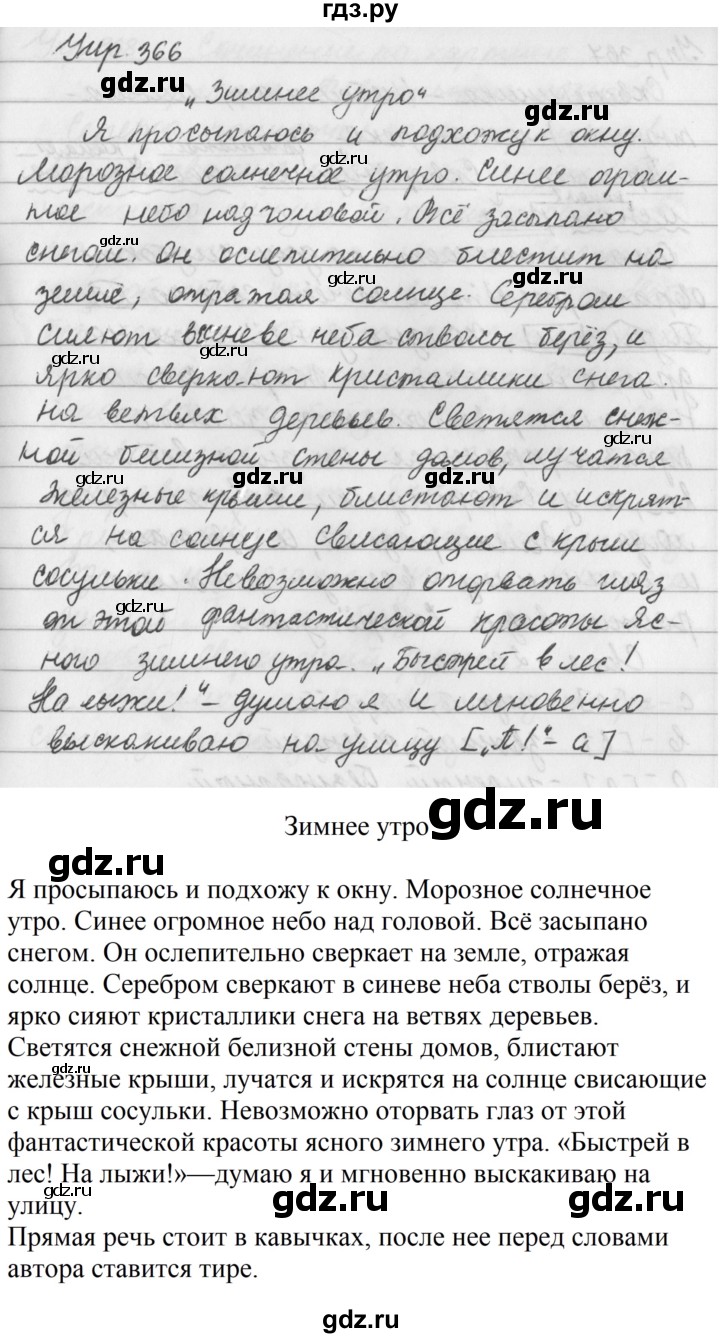 гдз.ру
Упр 366
„Зимнее утро“
Я просыпаюсь и подхожу к окну.
Морозное солнечное утро. Синее огром-
ное небо над головой. Всё засыпано
снегом. Он ослепительно блестит на
земле, отражая солнце. Серебром
сияют в синеве неба стволы берёз, и
ярко сверкают кристаллики снега
на ветвях деревьев. Светятся снеж-
ной белизной стены домов, лучатся
железные крыши, блистают и искрят-
ся на солнце свисающие с крыш
сосульки. Невозможно оторвать глаз
от этой фантастической красоты яс-
ного зимнего утра. „Быстрей в лес!
На лыжи!“ – думаю я и мгновенно
выскакиваю на улицу [„П!“ – а]
Зимнее утро
gdz.ru
gdz.ru
Я просыпаюсь и подхожу к окну. Морозное солнечное
утро. Синее огромное небо над головой. Всё засыпано
снегом. Он ослепительно сверкает на земле, отражая
солнце. Серебром сверкают в синеве неба стволы берёз, и
ярко сияют кристаллики снега на ветвях деревьев.
Светятся снежной белизной стены домов, блистают
железные крыши, лучатся и искрятся на солнце свисающие
с крыш сосульки. Невозможно оторвать глаз от этой
фантастической красоты ясного зимнего утра. «Быстрей в
лес! На лыжи!»—думаю я и мгновенно выскакиваю на
улицу.
gdz.ru
gdz.ru
Прямая речь стоит в кавычках, после нее перед словами
автора ставится тире.
gdz.ru